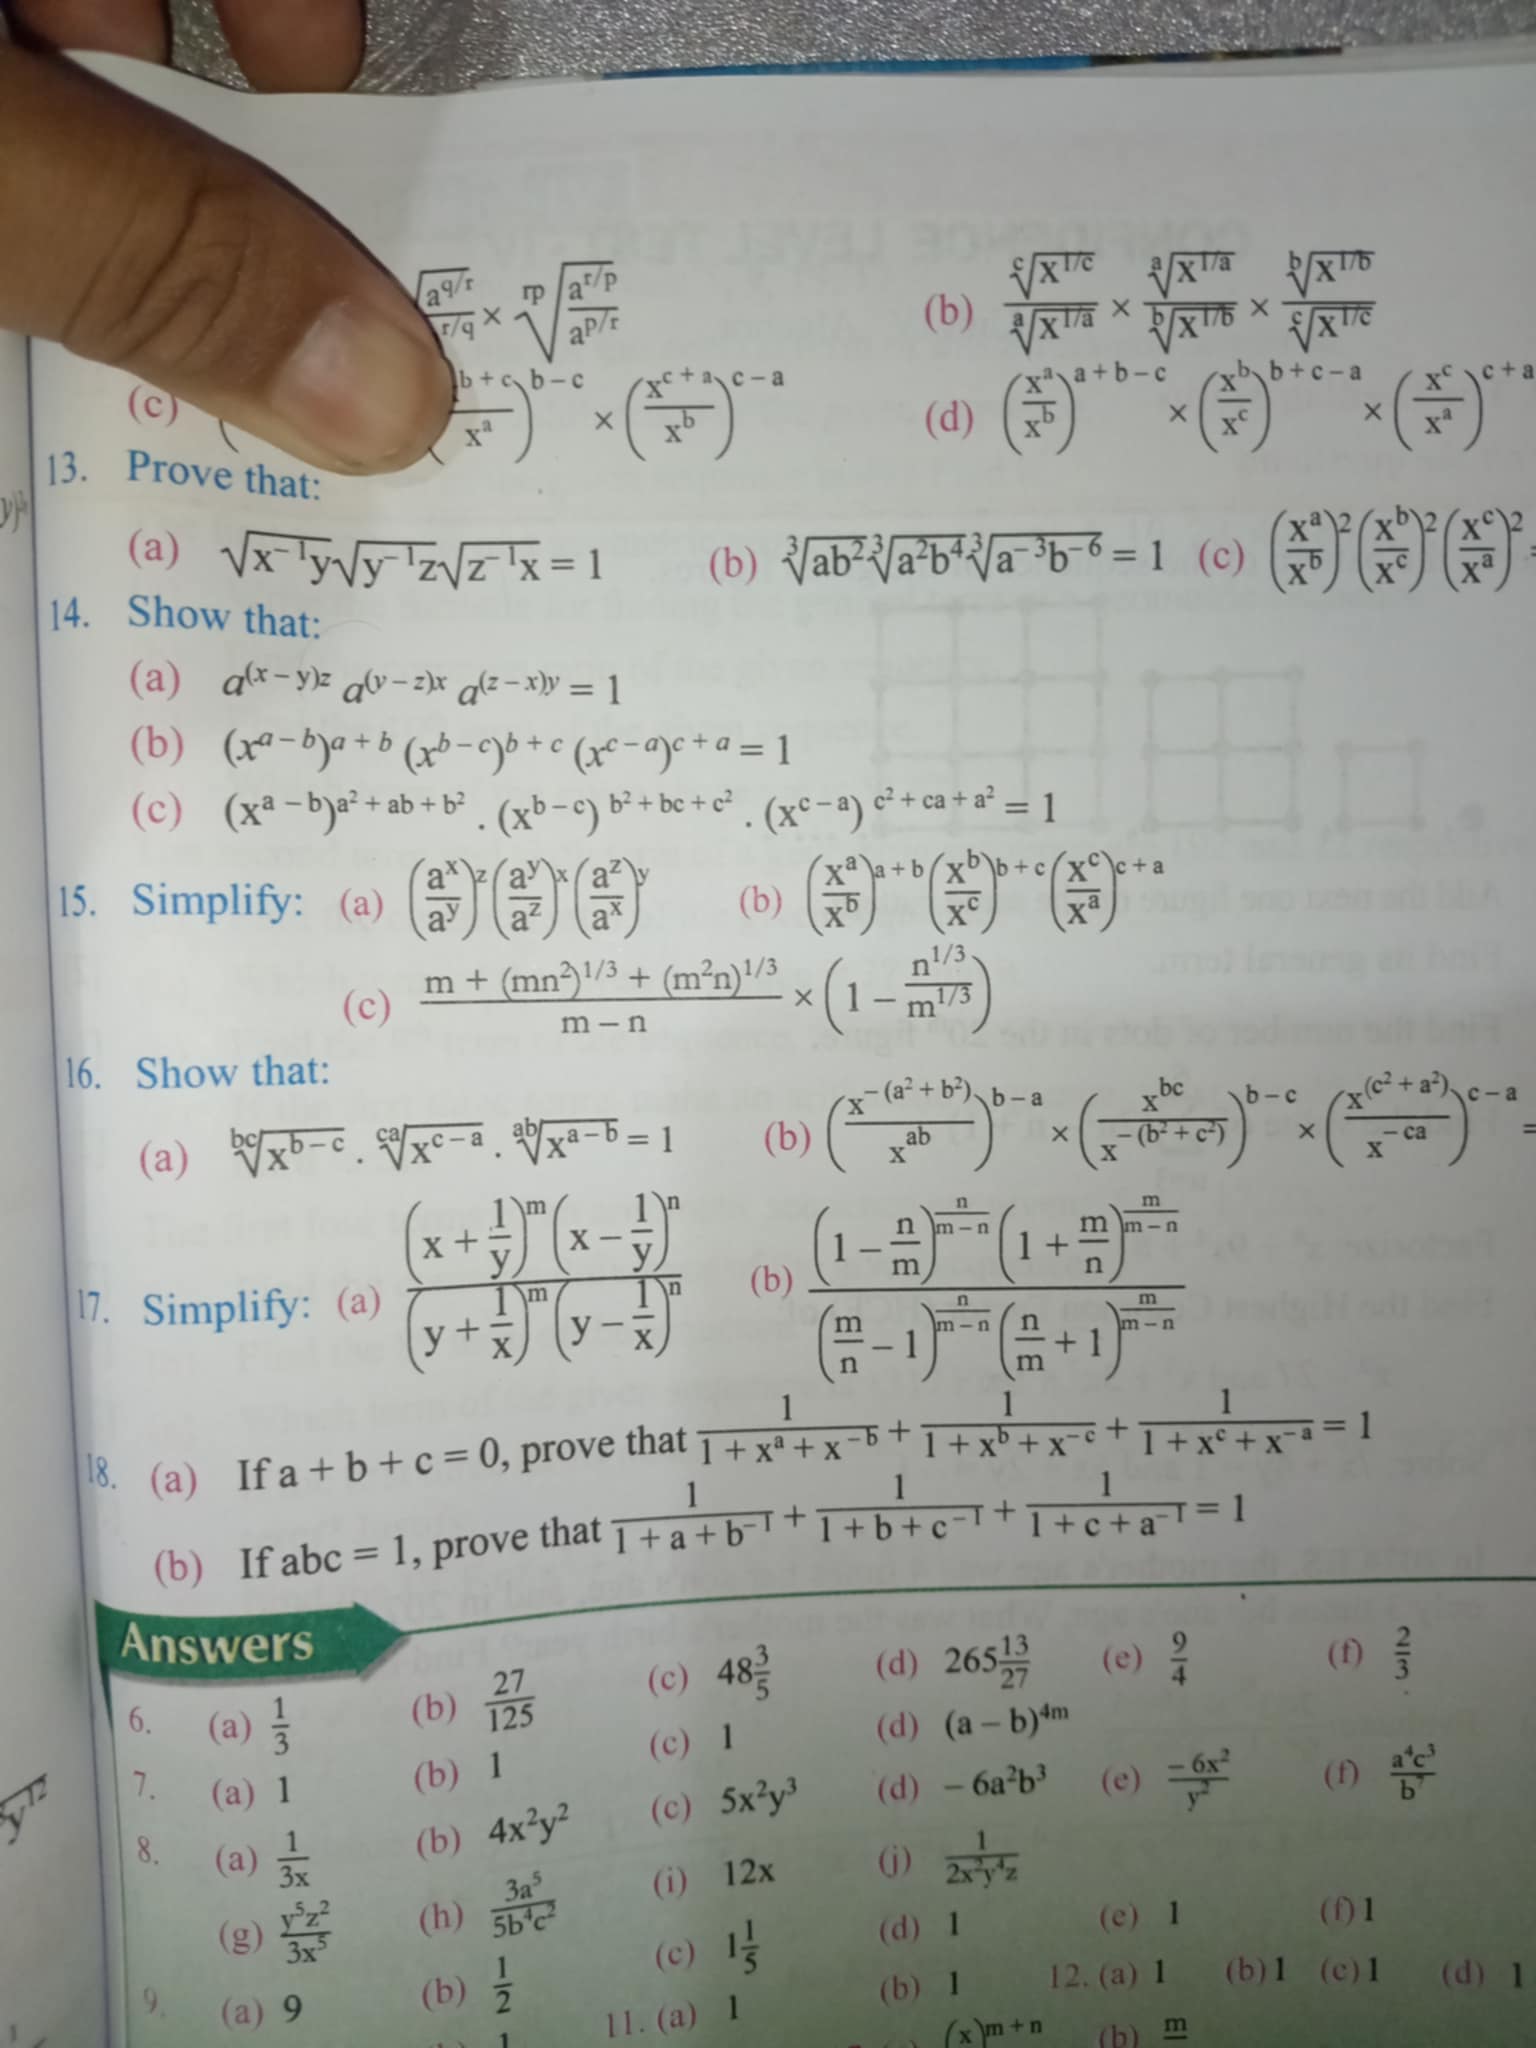 √(a^(q/r) / ^(r/q)) × ^(rp)√(a^(r/p) / a^(p/r)) (b) ^c√(x^(1/c)) / ^a√(x^(1/a)) × ^a√(x^(1/a)) / ^b√(x^(1/b)) × ^b√(x^(1/b)) / ^c√(x^(1/c))
(c) ( ^(b + c) / x^a)^(b – c) × (x^(c + a) / x^b)^(c – a) (d) (x^a / x^b)^(a + b – c) × (x^b / x^c)^(b + c – a) × (x^c / x^a)^(c + a
13. Prove that:
(a) √(x⁻¹y)√(y⁻¹z)√(z⁻¹x) = 1 (b) ³√(ab²) ³√(a²b⁴) ³√(a⁻³b⁻⁶) = 1 (c) (x^a / x^b)² (x^b / x^c)² (x^c / x^a)² =
14. Show that:
(a) a^((x – y)z) a^((y – z)x) a^((z – x)y) = 1
(b) (x^(a – b))^(a + b) (x^(b – c))^(b + c) (x^(c – a))^(c + a) = 1
(c) (x^(a – b))^(a² + ab + b²) . (x^(b – c))^(b² + bc + c²) . (x^(c – a))^(c² + ca + a²) = 1
15. Simplify: (a) (a^x / a^y)^z (a^y / a^z)^x (a^z / a^x)^y (b) (x^a / x^b)^(a + b) (x^b / x^c)^(b + c) (x^c / x^a)^(c + a)
(c) m + (mn²)^(1/3) + (m²n)^(1/3) / m – n × (1 – n^(1/3) / m^(1/3))
16. Show that:
(a) ^(bc)√(x^(b – c)) . ^(ca)√(x^(c – a)) . ^(ab)√(x^(a – b)) = 1 (b) (x^(–(a² + b²)) / x^(ab))^(b – a) × (x^(bc) / x^(–(b² + c²)))^(b – c) × (x^((c² + a²)) / x^(–ca))^(c – a) =
17. Simplify: (a) (x + 1/y)^m (x – 1/y)^n / (y + 1/x)^m (y – 1/x)^n (b) (1 – n/m)^(n/(m – n)) (1 + m/n)^(m/(m – n)) / (m/n – 1)^(n/(m – n)) (n/m + 1)^(m/(m – n))
18. (a) If a + b + c = 0, prove that 1 / (1 + x^a + x^(–b)) + 1 / (1 + x^b + x^(–c)) + 1 / (1 + x^c + x^(–a)) = 1
(b) If abc = 1, prove that 1 / (1 + a + b⁻¹) + 1 / (1 + b + c⁻¹) + 1 / (1 + c + a⁻¹) = 1
Answers
6. (a) 1/3 (b) 27/125 (c) 48 3/5 (d) 265 13/27 (e) 9/4 (f) 2/3
7. (a) 1 (b) 1 (c) 1 (d) (a – b)^(4m)
8. (a) 1/3x (b) 4x²y² (c) 5x²y³ (d) – 6a²b³ (e) – 6x²/y² (f) a⁴c³/b⁷
(g) y⁵z²/3x⁵ (h) 3a⁵/5b⁴c² (i) 12x (j) 1/2x²y⁴z
9. (a) 9 (b) 1/2 (c) 1 1/5 (d) 1 (e) 1 (f) 1
11. (a) 1 (b) 1 12. (a) 1 (b) 1 (c) 1 (d) 1
(x)^(m + n) (b) m